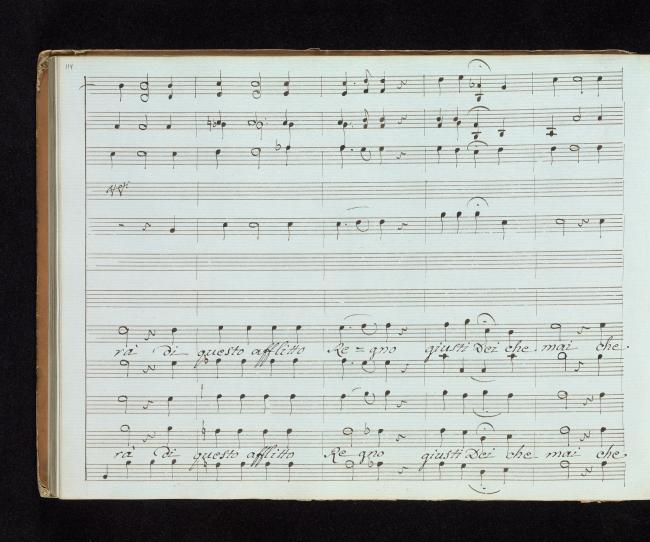 114
rà di questo afflitto Re=gno giusti Dei che mai che
rà di questo afflitto Re gno giusti Dei che mai che